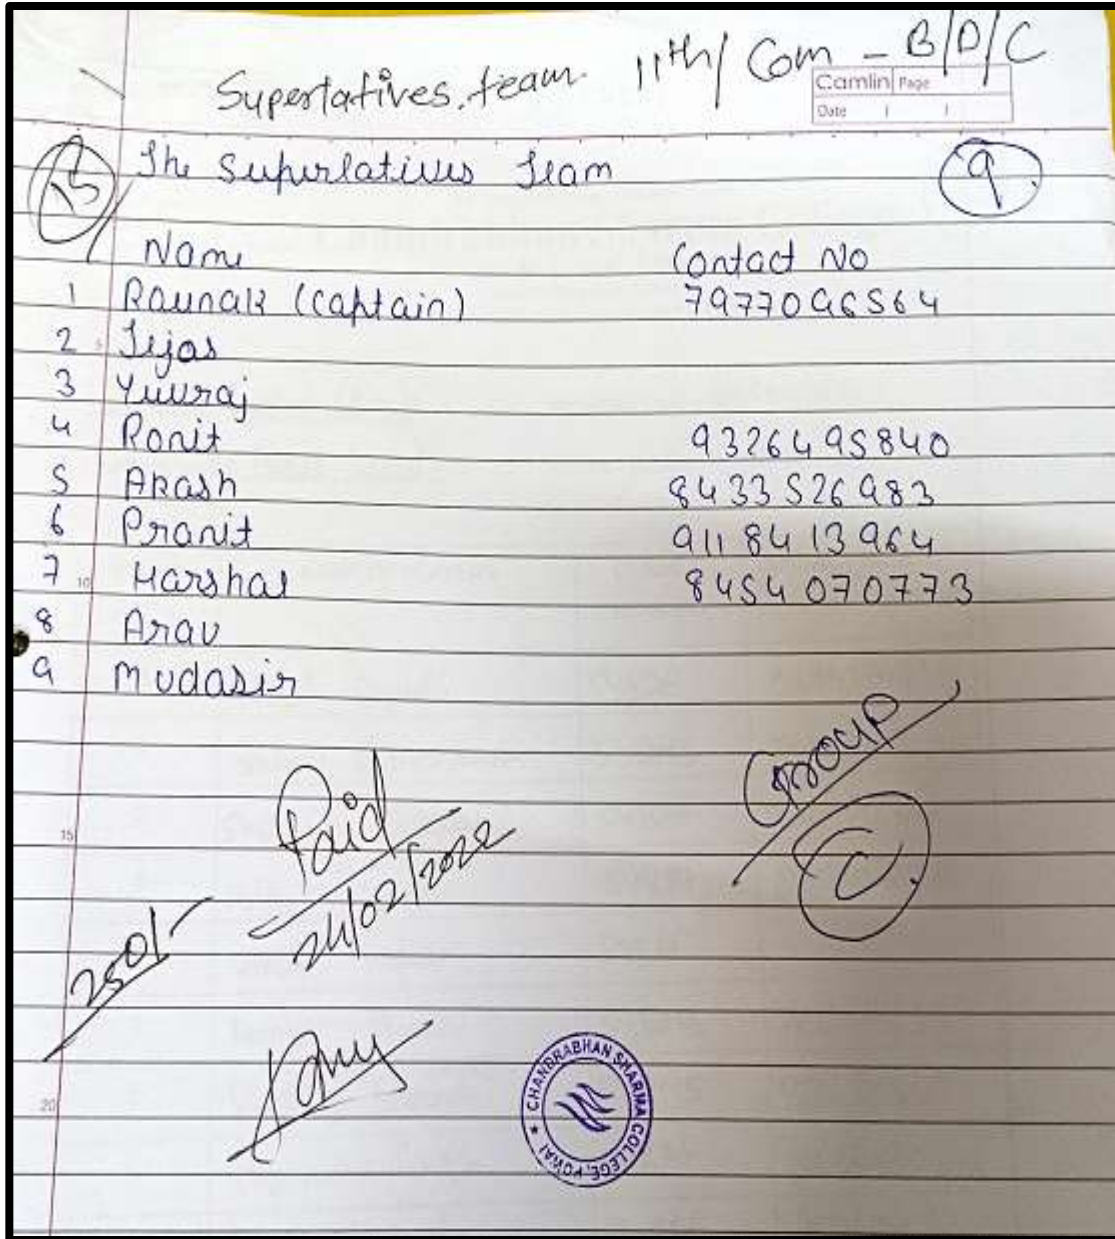 Superlatives team. 11th/ Com - B/D/C
Camlin Page
Date / /
15
The Superlatives Team
9
Name Contact No
1 Raunak (Captain) 7977096564
2 Tejas
3 Yuvraj
4 Ronit 9326495840
5 Akash 8433526983
6 Pranit 9118413964
7 Harshal 8454070773
8 Arav
9 Mudasir
Group
C.
Paid
24/02/2022
250/-
CHANDRABHAN SHARMA COLLEGE, POWAI ★
5
10
15
20